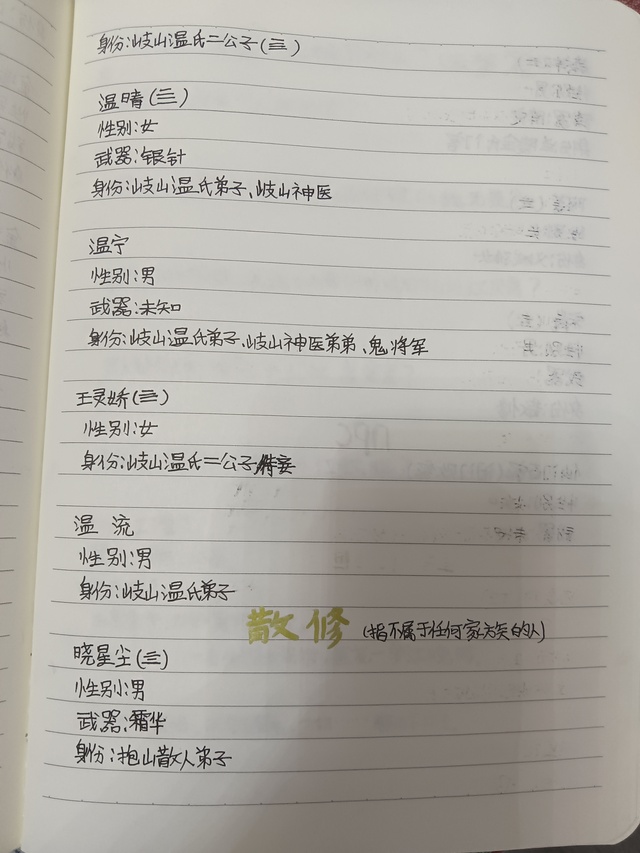 身份:岐山温氏二公子(亖)
温晴(亖)
性别:女
武器:银针
身份:岐山温氏弟子、岐山神医
温宁
性别:男
武器:未知
身份:岐山温氏弟子、岐山神医弟弟、鬼将军
王灵娇(亖)
性别:女
身份:岐山温氏二公子侍妾
温流
性别:男
身份:岐山温氏弟子
散修 (指不属于任何家族的人)
晓星尘(亖)
性别:男
武器:霜华
身份:抱山散人弟子